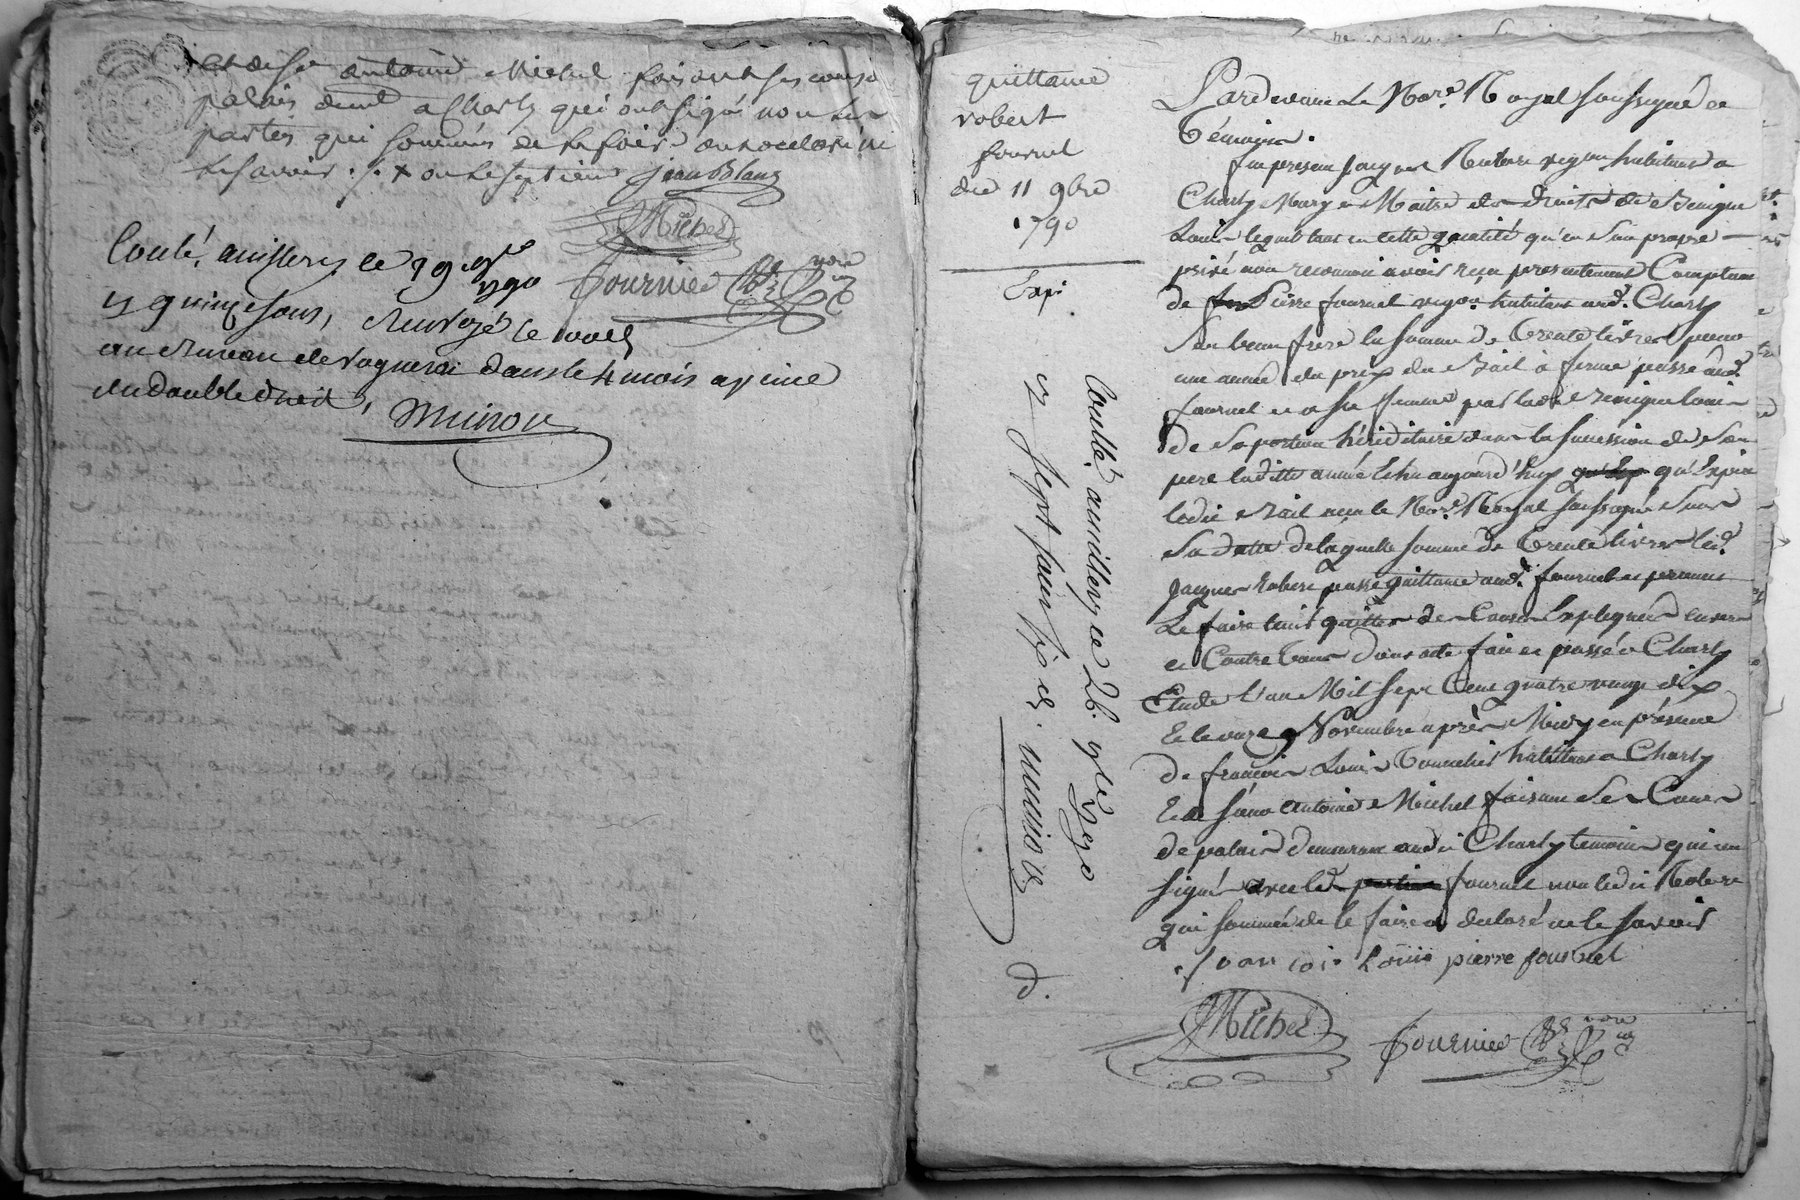 et de Sr antoine Michel faisant ses cours de
palais demt a Charly qui ont signé non les
parties qui sommés de le faire ont declaré ne
le savoir. jean Blanc
Michel
Fournier
Conté, a millery le 19 9bre
1790
quinze sous,
au bureau de vogneray dans le 4 mois a peine
du double droit,
Minon
quittance
robert
fournel
du 11 9bre
1790
Expé
Contté a millery ce 26 9bre 1790
Pardevant Le Nore Royal soussigné et
Témoins.
fut present jacques Robert vigon habitant a
Charly Mary et Maitre des droits de Benigne
Louis lequel tant en cette qualité qu'en son propre
privé nom reconnoit avoir reçu presentement Comptant
de Pierre fournel vigon habitant aud. Charly
son beau frere la somme de Trente livres pour
une année du prix du Bail à ferme passé aud.
fournel et a sa femme par ladite Benigne Louis
de sa portion héréditaire dans la succession de son
pere laditte année Echue aujourd'huy qu'Expire
ledit Bail reçu le Nore Royal soussigné sous
sa datte de laquelle somme de Trente livres led.
jacques Robert passe quittance aud. fournel et promet
Le faire tenir quitte de Cause Expliquée envers
et Contre Tous dont acte fait et passé a Charly
Etude L'an Mil sept Cent quatre vingt dix
Et le onze Novembre après Midy en présence
de françois Louis habitant a Charly
Et de sieur antoine Michel faisant ses Cours
de palais demeurant audit Charly temoins qui ont
signé avec led. fournel non ledit Robert
qui sommé de le faire a declaré ne le savoir
Louis pierre fournel
Michel
Fournier